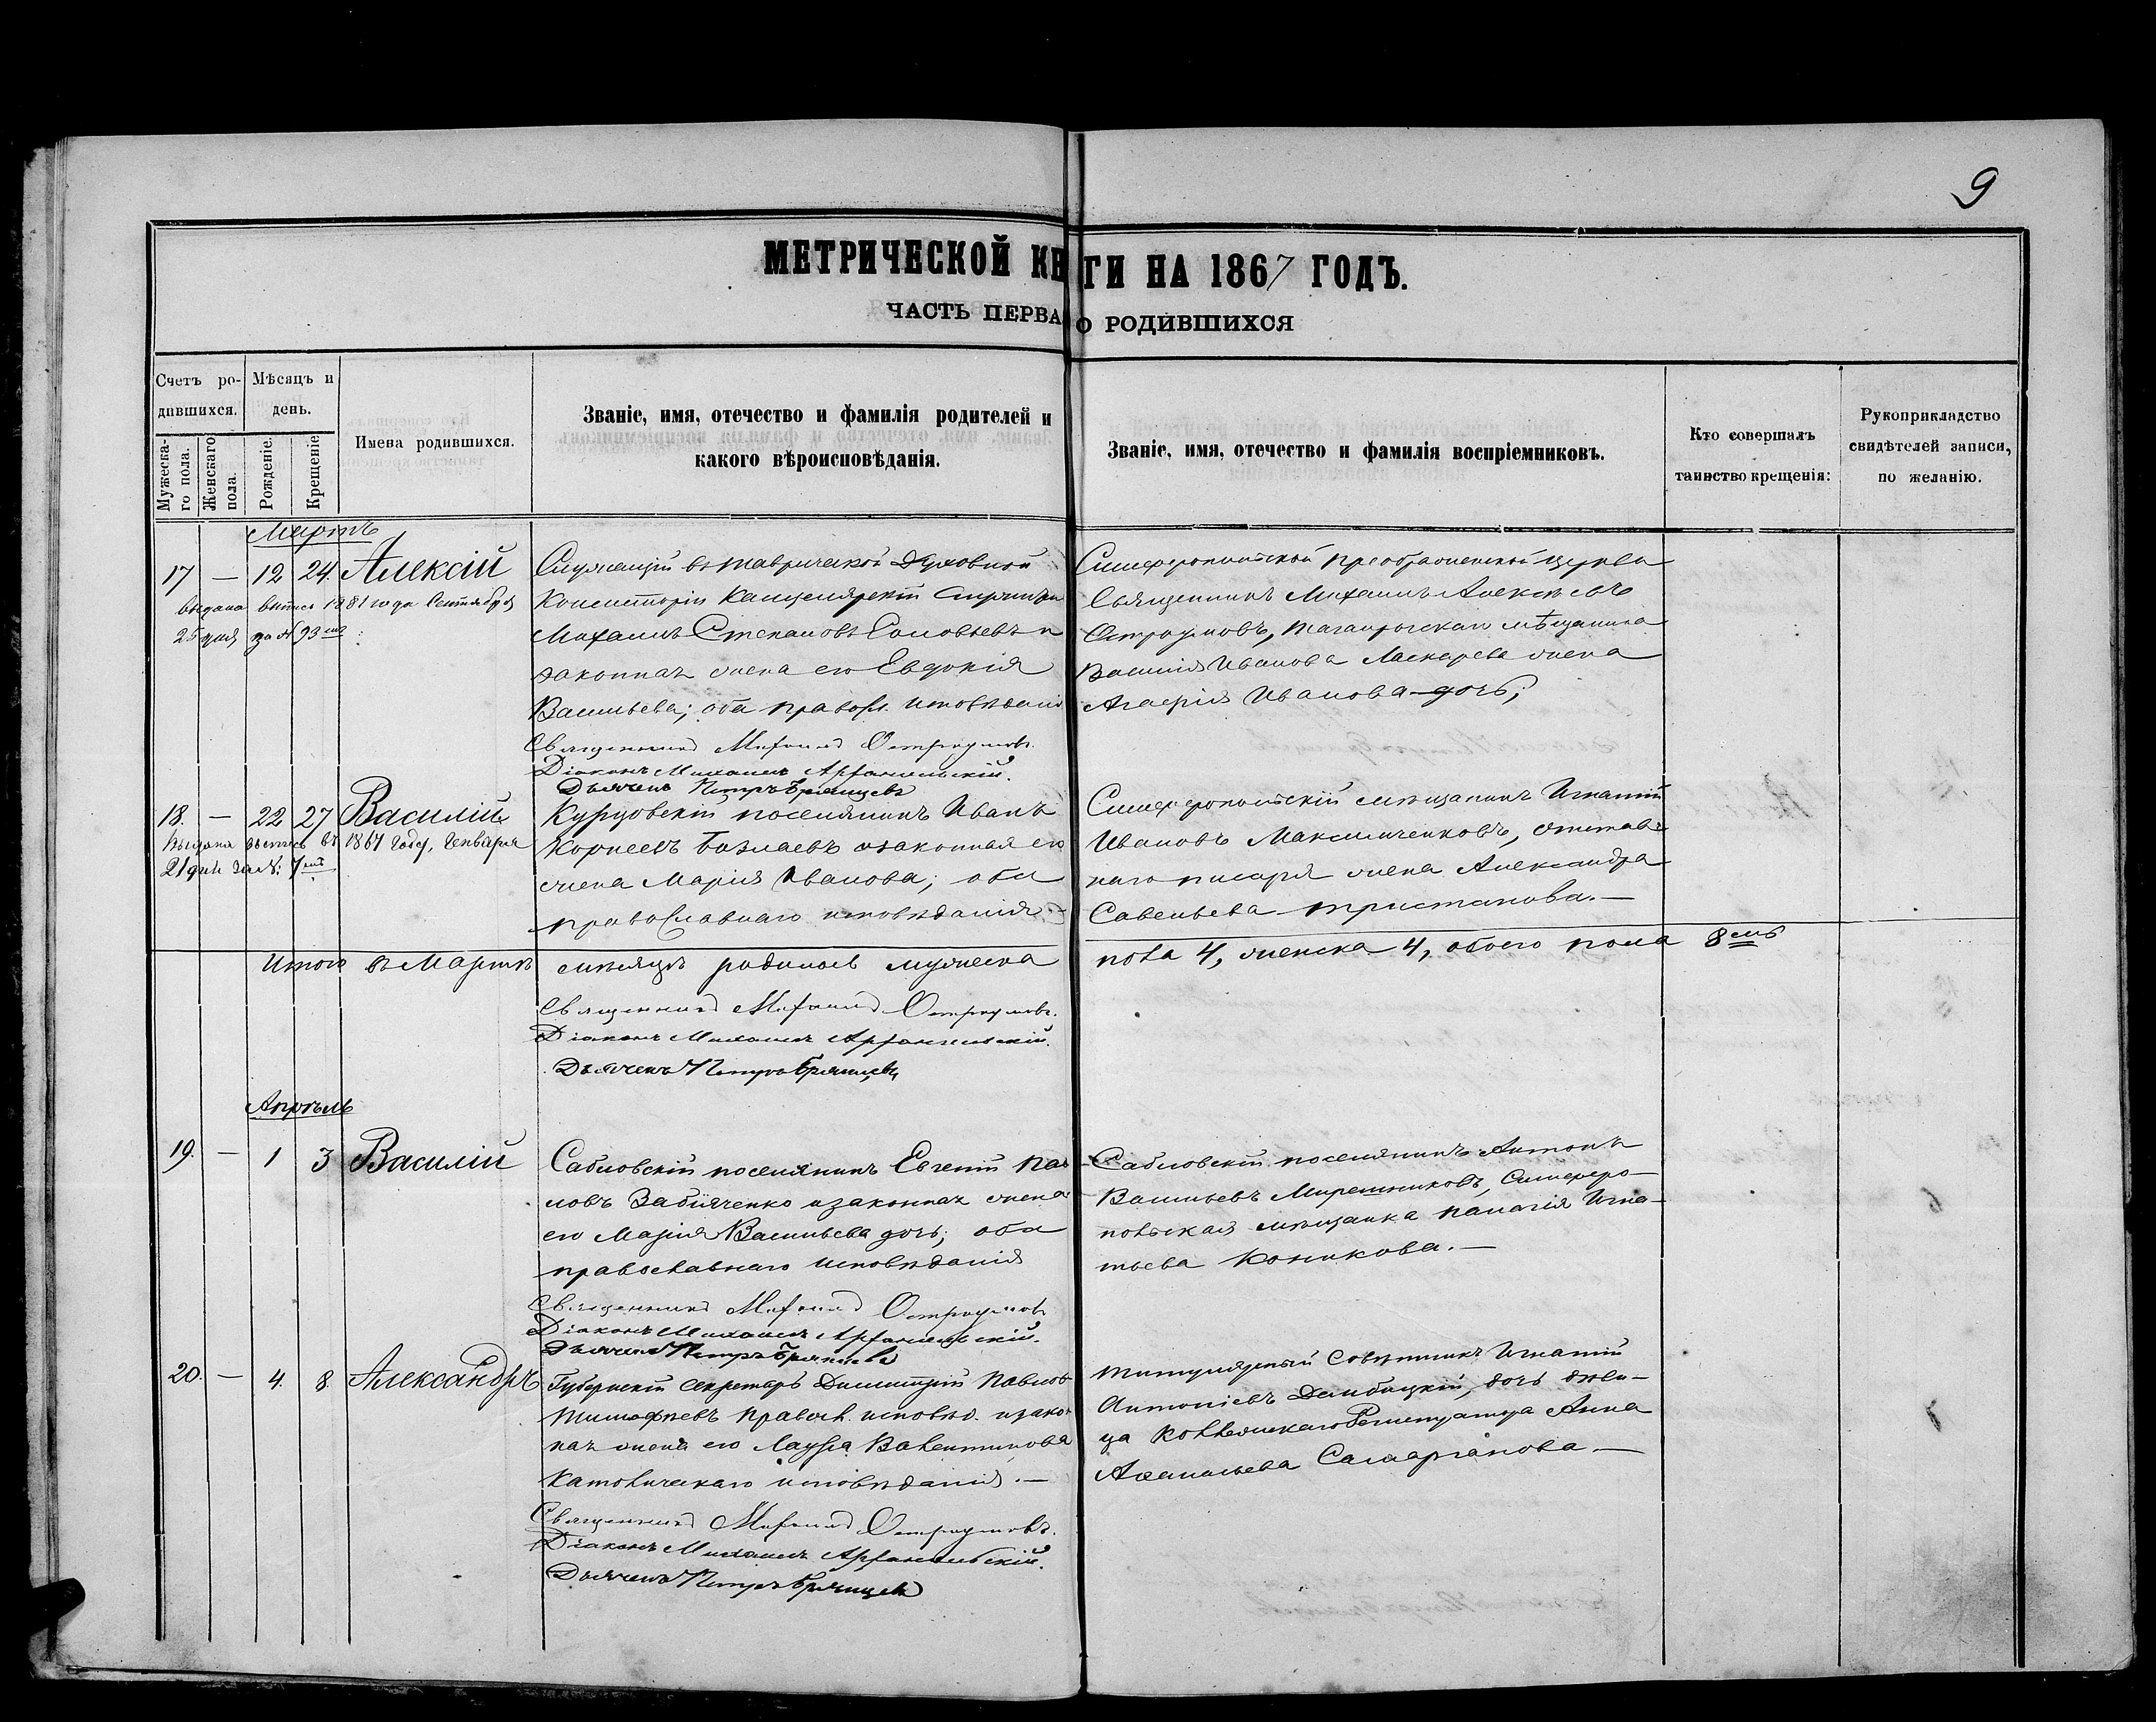 9
МЕТРИЧЕСКОЙ КН ГИ НА 1867 ГОДЪ.
ЧАСТЬ ПЕРВА О РОДИВШИХСЯ
Счетъ ро-
дившихся.
Мѣсяцъ и
день.
Мужеска-
го пола.
Женскаго
пола.
Рожденіе.
Крещеніе
Имена родившихся.
Званіе, имя, отечество и фамилія родителей и
какого вѣроисповѣданія.
Званіе, имя, отечество и фамилія воспріемниковъ.
Кто совершалъ
таинство крещенія:
Рукоприкладство
свидѣтелей записи,
по желанію.
Мартъ
17 — 12 24. Алексій
выдана выпись 1881 года Сентября
25 дня за № 93
Служащій въ Таврической Духовной
Консисторіи Канцелярскій Служитель
Михаилъ Степановъ Соловьевъ и
законная жена его Евдокія
Васильева; оба правосл. исповѣданія
Священникъ Михаилъ Остроумовъ.
Діаконъ Михаилъ Архангельскій.
Дьячекъ Петръ Брянцевъ
Симферопольской Преображенской церкви
Священникъ Михаилъ Алексѣевъ
Остроумовъ, Таганрогскаго мѣщанина
Василія Иванова жена
Агафія Иванова дочь;
18. — 22 27 Василій
Выдана выпись въ 1867 году, Генваря
21 дня за №: 7
Курцовскій поселянинъ Иванъ
Корнеевъ и законная его
жена Марія Иванова; оба
православнаго исповѣданія —
Симферопольскій мѣщанинъ Игнатій
Ивановъ Максимченковъ, отстав-
наго писаря жена Александра
Савельева Тристанова. —
Итого въ Мартѣ мѣсяцѣ родилось мужеска
пола 4, женска 4, обоего пола 8емь
Священникъ Михаилъ Остроумовъ.
Діаконъ Михаилъ Архангельскій.
Дьячекъ Петръ Брянцевъ
Апрѣль
19. — 1 3 Василій
Сабловскій поселянинъ Евгеній Пав-
ловъ Забіяченко и законная жена
его Марія Васильева дочь; оба
православнаго исповѣданія
Священникъ Михаилъ Остроумовъ
Діаконъ Михаилъ Архангельскій.
Дьячекъ Петръ Брянцевъ
Сабловскій поселянинъ Антонъ
Васильевъ Мирешниковъ, Симферо-
польская мѣщанка Панагія Игна-
тьева Коникова. —
20. — 4. 8. Александръ
Губернскій Секретарь Димитрій Павловъ
Тимофѣевъ правосл. исповѣд. и закон-
ная жена его Лаура Валентинова
Католическаго исповѣданія. —
Священникъ Михаилъ Остроумовъ.
Діаконъ Михаилъ Архангельскій.
Дьячекъ Петръ Брянцевъ
Титулярный Совѣтникъ Игнатій
Антоніевъ Дембицкій, дочь дѣви-
ца Коллежскаго Регистратора Анна
Самарганова —